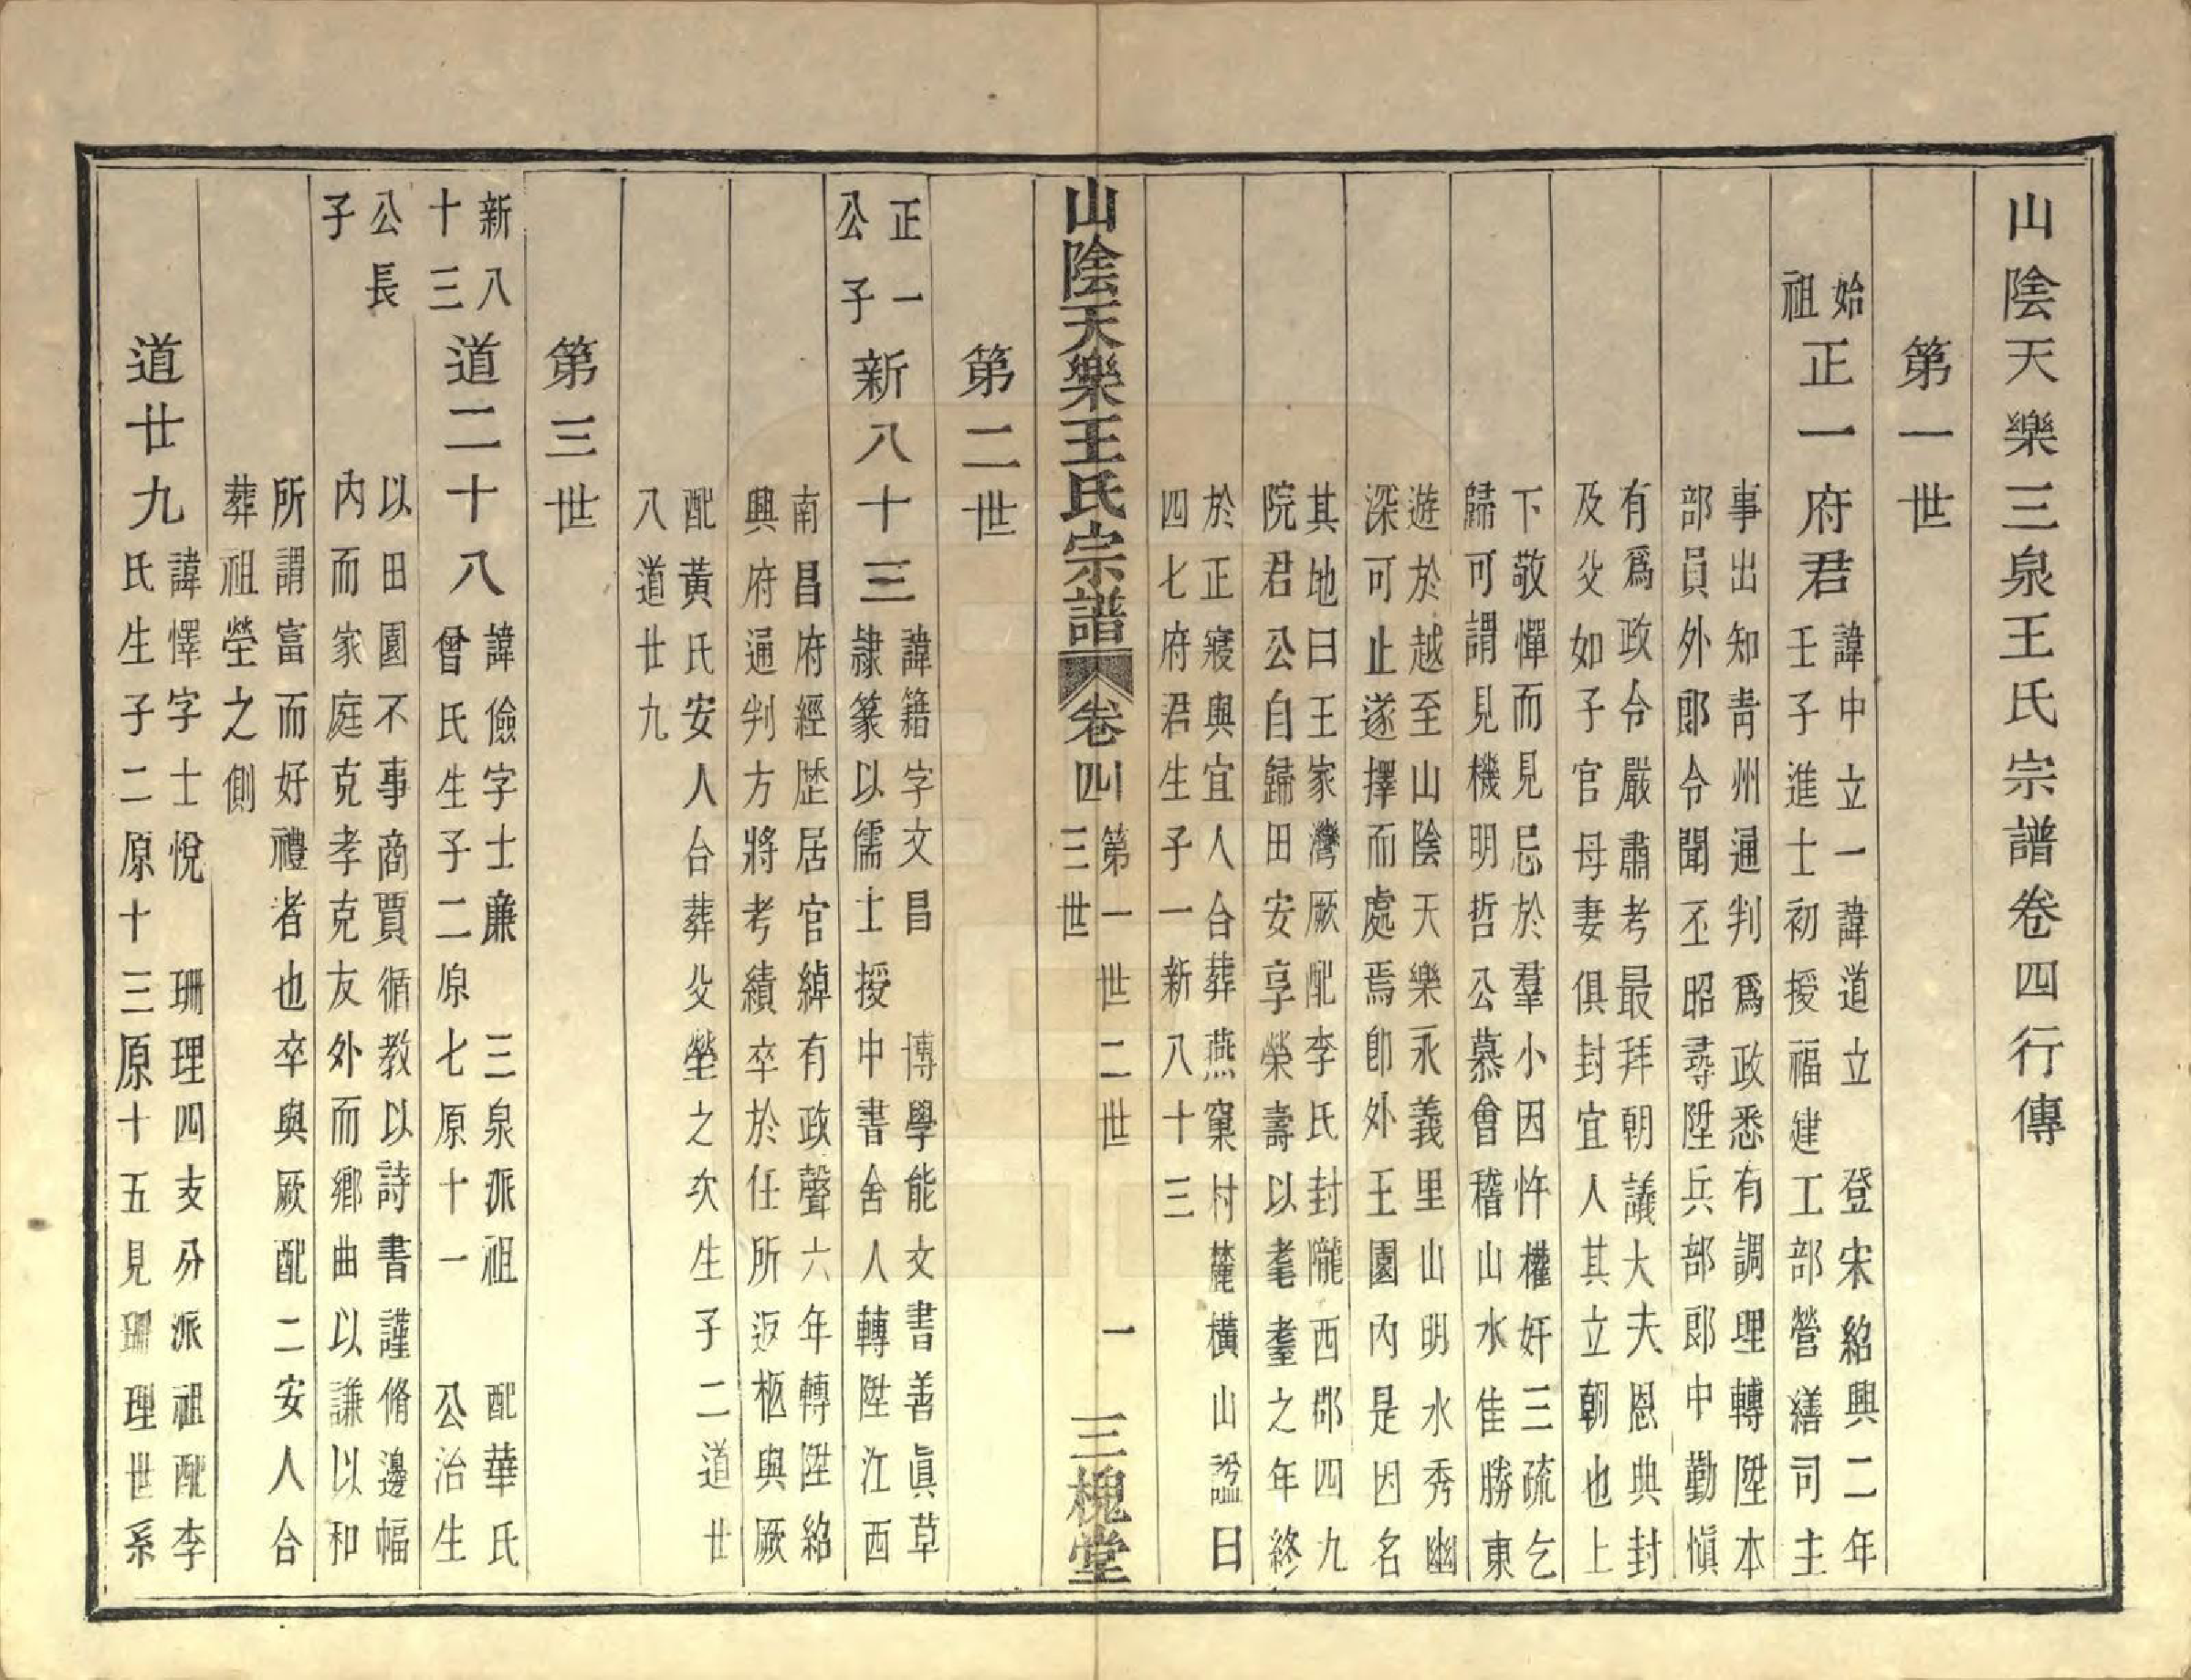 山陰天樂三泉王氏宗譜卷四行傳
第一世
始祖
正一府君
諱中立一諱道立 登宋紹興二年
壬子進士初授福建工部營繕司主
事出知靑州通判爲政悉有調理轉陞本
部員外郎令聞丕昭尋陞兵部郎中勤愼
有爲政令嚴肅考最拜朝議大夫恩典封
及父如子官母妻俱封宜人其立朝也上
下敬憚而見忌於羣小因忤權奸三疏乞
歸可謂見機明哲公慕會稽山水佳勝東
遊於越至山陰天樂永義里山明水秀幽
深可止遂擇而處焉卽外王園內是因名
其地曰王家灣厥配李氏封隴西郡四九
院君公自歸田安享榮壽以耄耋之年終
於正寢與宜人合葬燕窠村麓橫山謚曰
四七府君生子一新八十三
山陰天樂王氏宗譜 卷四 第一世二世三世 一 三槐堂
第二世
正一公子
新八十三
諱籍字文昌 博學能文書善眞草
隷篆以儒士授中書舍人轉陞江西
南昌府經歷居官綽有政聲六年轉陞紹
興府通判方將考績卒於任所返柩與厥
配黃氏安人合葬父塋之次生子二道廿
八道廿九
第三世
新八十三公長子
道二十八
諱儉字士廉 三泉派祖 配華氏
曾氏生子二原七原十一 公治生
以田園不事商賈循教以詩書謹脩邊幅
內而家庭克孝克友外而鄉曲以謙以和
所謂富而好禮者也卒與厥配二安人合
葬祖塋之側
道廿九
諱懌字士悅 珊理四支分派祖配李
氏生子二原十三原十五見珊理世系